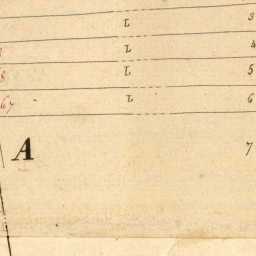 L 3
L 4
8 L 5
67 L 6
A 7